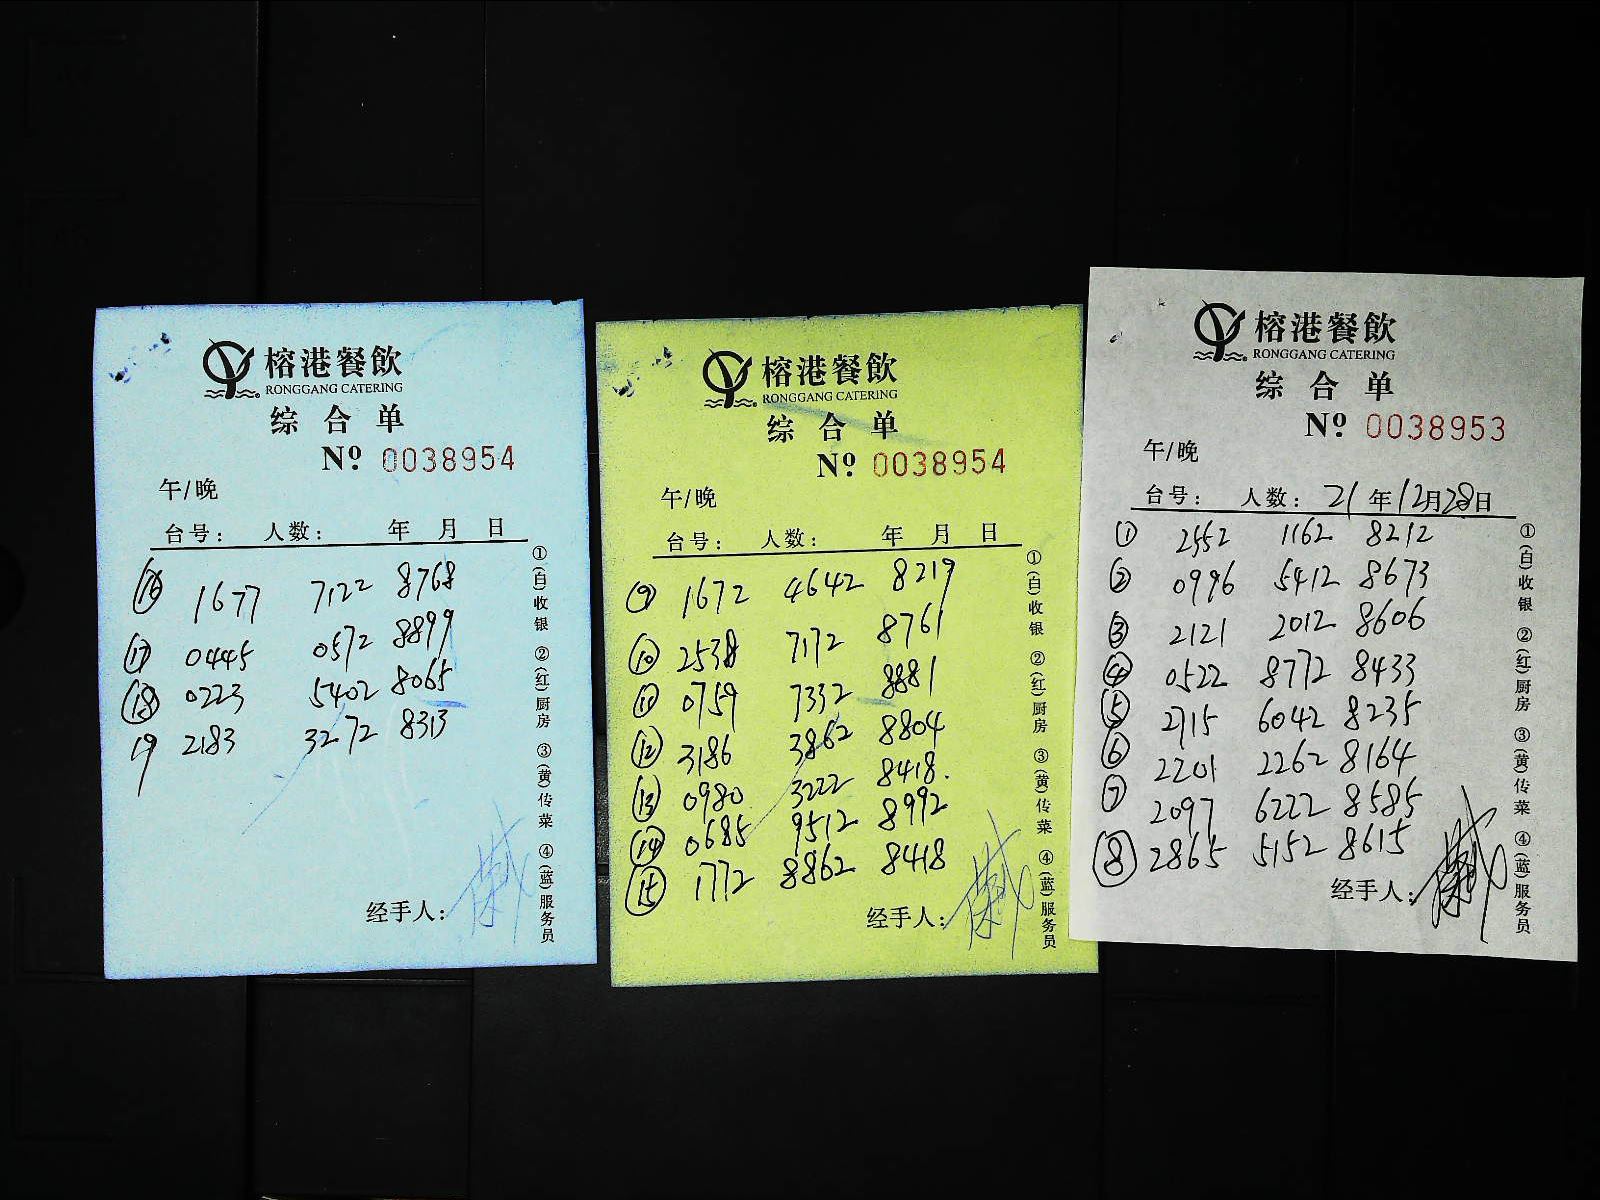 榕港餐飲
RONGGANG CATERING
综合单
Nº 0038954
午/晚
台号： 人数： 年 月 日
⑯ 1677 7122 8768
⑰ 0445 0572 8899
⑱ 0223 5402 8065
19 2183 3272 8313
经手人：
①(白)收银 ②(红)厨房 ③(黄)传菜 ④(蓝)服务员
榕港餐飲
RONGGANG CATERING
综合单
Nº 0038954
午/晚
台号： 人数： 年 月 日
⑨ 1672 4642 8219
⑩ 2538 7172 8761
⑪ 0759 7332 8881
⑫ 3186 3862 8804
⑬ 0980 3222 8418.
⑭ 0685 9512 8992
⑮ 1772 8862 8418
经手人：
①(白)收银 ②(红)厨房 ③(黄)传菜 ④(蓝)服务员
榕港餐飲
RONGGANG CATERING
综合单
Nº 0038953
午/晚
台号： 人数： 21年12月28日
① 2552 1162 8212
② 0996 5412 8673
③ 2121 2012 8606
④ 0522 8772 8433
⑤ 2715 6042 8235
⑥ 2201 2262 8164
⑦ 2097 6222 8585
⑧ 2865 5152 8615
经手人：
①(白)收银 ②(红)厨房 ③(黄)传菜 ④(蓝)服务员